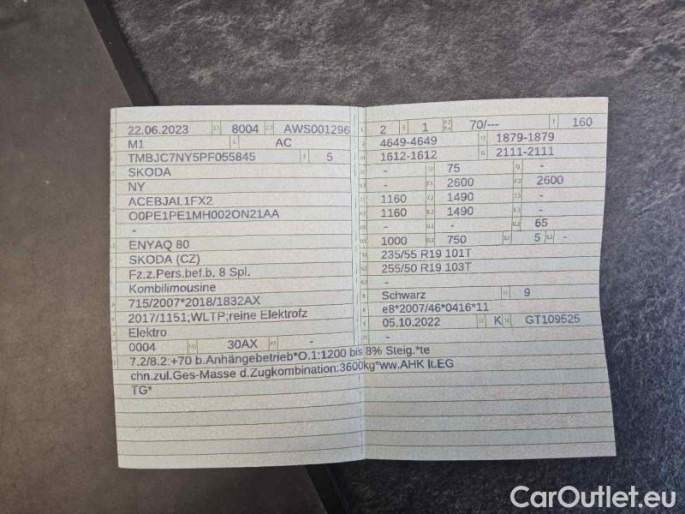 22.06.2023 8004 AWS001296
M1 AC
TMBJC7NY5PF055845 5
SKODA
NY
ACEBJAL1FX2
O0PE1PE1MH002ON21AA
-
ENYAQ 80
SKODA (CZ)
Fz.z.Pers.bef.b. 8 Spl.
Kombilimousine
715/2007*2018/1832AX
2017/1151;WLTP;reine Elektrofz
Elektro
0004 30AX -
2 1 70/--- 160
4649-4649 1879-1879
1612-1612 2111-2111
- 75 -
- 2600 2600
1160 1490 -
1160 1490 -
- - 65
1000 750 5 -
235/55 R19 101T
255/50 R19 103T
-
Schwarz 9
e8*2007/46*0416*11
05.10.2022 K GT109525
-
7.2/8.2:+70 b.Anhängebetrieb*O.1:1200 bis 8% Steig.*te
chn.zul.Ges-Masse d.Zugkombination:3600kg*ww.AHK lt.EG
TG*
CarOutlet.eu